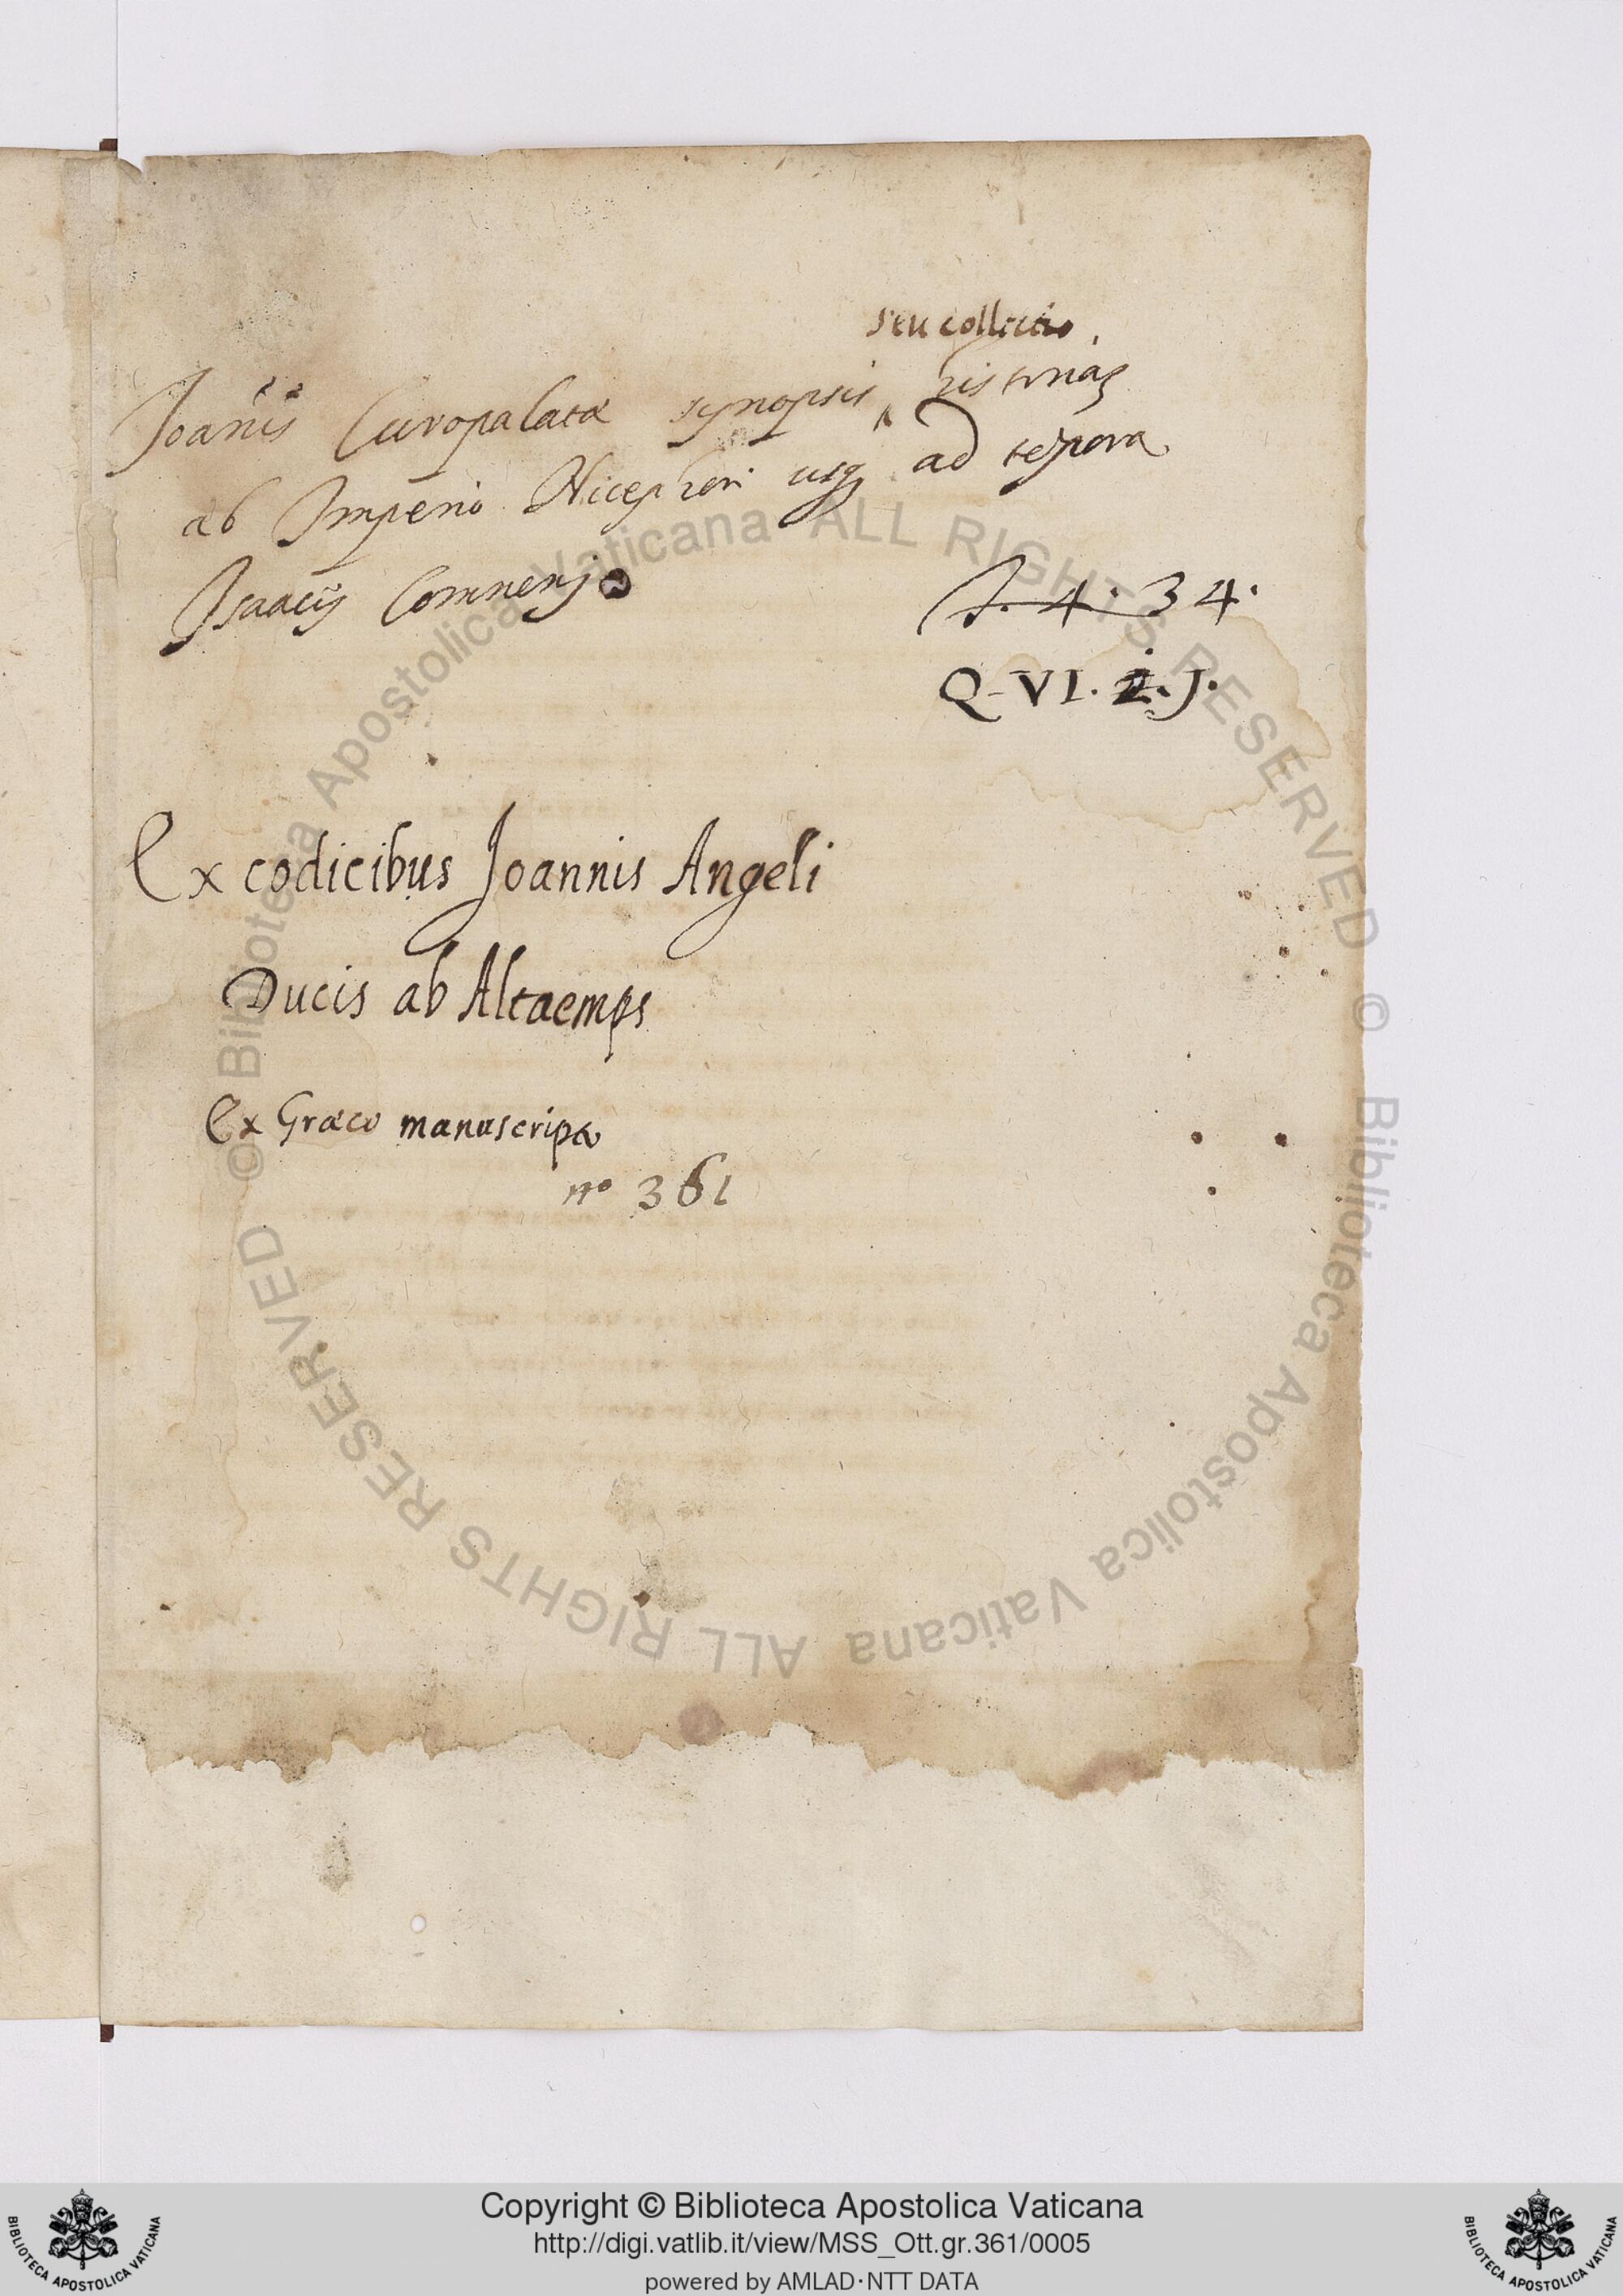 seu collectio
Joañis Curopalatæ synopsis ‸ historiaȝ
ab Imperio Nicephori usqȝ ad tẽpora
Isaacij Comnenj
J. 4. 34.
Q-VI. 2. J.
Ex codicibus Joannis Angeli
Ducis ab Altaemps
Ex Græco manuscripto
nº 361
© Biblioteca Apostolica Vaticana ALL RIGHTS RESERVED © Biblioteca Apostolica Vaticana ALL RIGHTS RESERVED
Copyright © Biblioteca Apostolica Vaticana
http://digi.vatlib.it/view/MSS_Ott.gr.361/0005
powered by AMLAD·NTT DATA
BIBLIOTECA APOSTOLICA VATICANA
BIBLIOTECA APOSTOLICA VATICANA